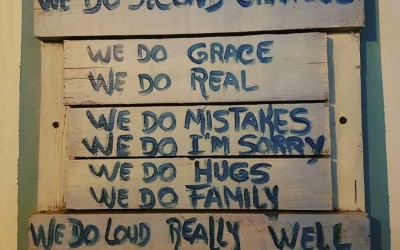 WE DO SECOND CHANCES
WE DO GRACE
WE DO REAL
WE DO MISTAKES
WE DO I'M SORRY
WE DO HUGS
WE DO FAMILY
WE DO LOUD REALLY WELL